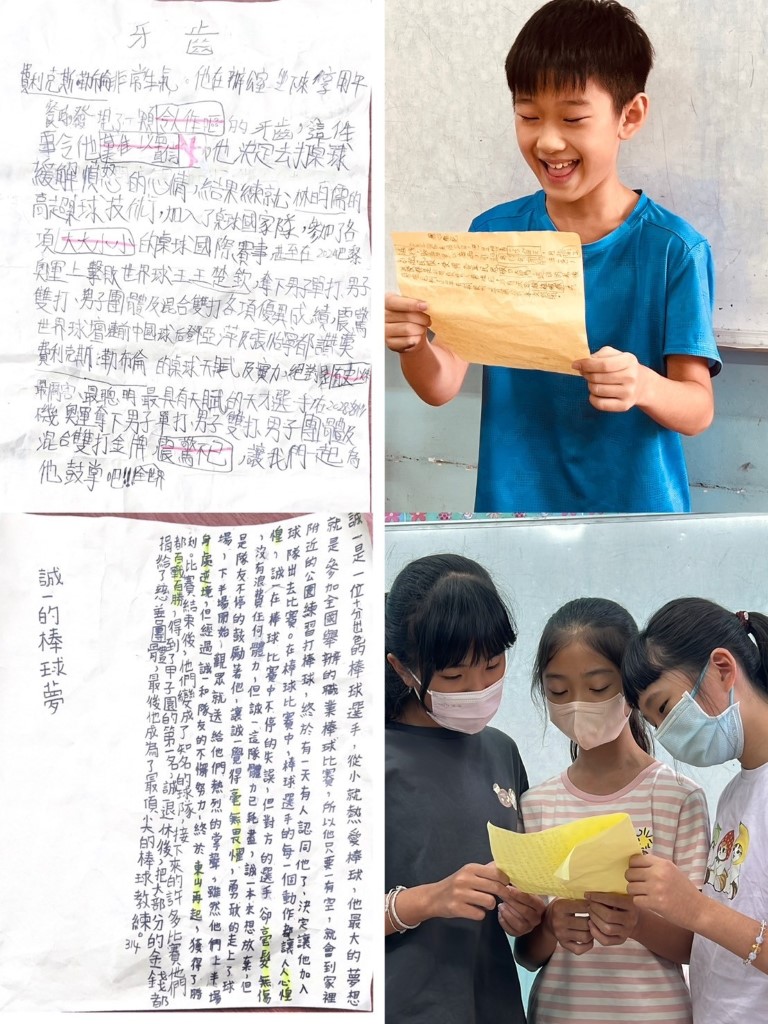 牙 齒
費利克斯·勒布倫非常生氣。他在辦公室坐下來享用午
餐時發現了一顆
的牙齒,這件
事令他
,他決定去打桌球
緩解憤怒的心情,結果練就林昀儒的
高超桌球技術,加入了桌球國家隊,參加了各
項大大小小的桌球國際賽事,甚至在2024巴黎
奧運上擊敗世界球王王楚欽,奪下男子單打、男子
雙打、男子團體及混合雙打各項優異成績,震驚
世界球壇,連中國球后鄧亞萍及張怡寧都讚嘆
費利克斯·勒布倫的桌球天賦及實力,絕對
最厲害、最聰明、最具有天賦的天才選手在2028洛杉
磯奧運奪下男子單打、男子雙打、男子團體及
混合雙打金牌,震驚不已,讓我們一起為
他鼓掌吧!!!
誠一的棒球夢
誠一是一位十分出色的棒球選手,從小就熱愛棒球,他最大的夢想
就是參加全國舉辦的職業棒球比賽,所以他只要一有空,就會到家裡
附近的公園練習打棒球,終於有一天有人認同他了,決定讓他加入
球隊出去比賽。在棒球比賽中,棒球選手的每一個動作都讓人心惶
惶,誠一在棒球比賽中不停的失誤,但對方的選手卻毫髮無傷
,沒有浪費任何體力,但誠一這隊體力已耗盡,誠一本來想放棄,但
是隊友不停的鼓勵著他,讓誠一覺得毫無畏懼,勇敢的走上了球
場,下半場開始,觀眾就送給他們熱烈的掌聲,雖然他們上半場
身處逆境,但經過誠一和隊友的不懈努力,終於東山再起,獲得了勝
利。比賽結束後,他們變成了知名的球隊,接下來的許多比賽他們
都百戰百勝,得到了甲子園的第一名,誠一退休後,把大部分的金錢都
捐給了慈善團體,最後他成為了最頂尖的棒球教練。314